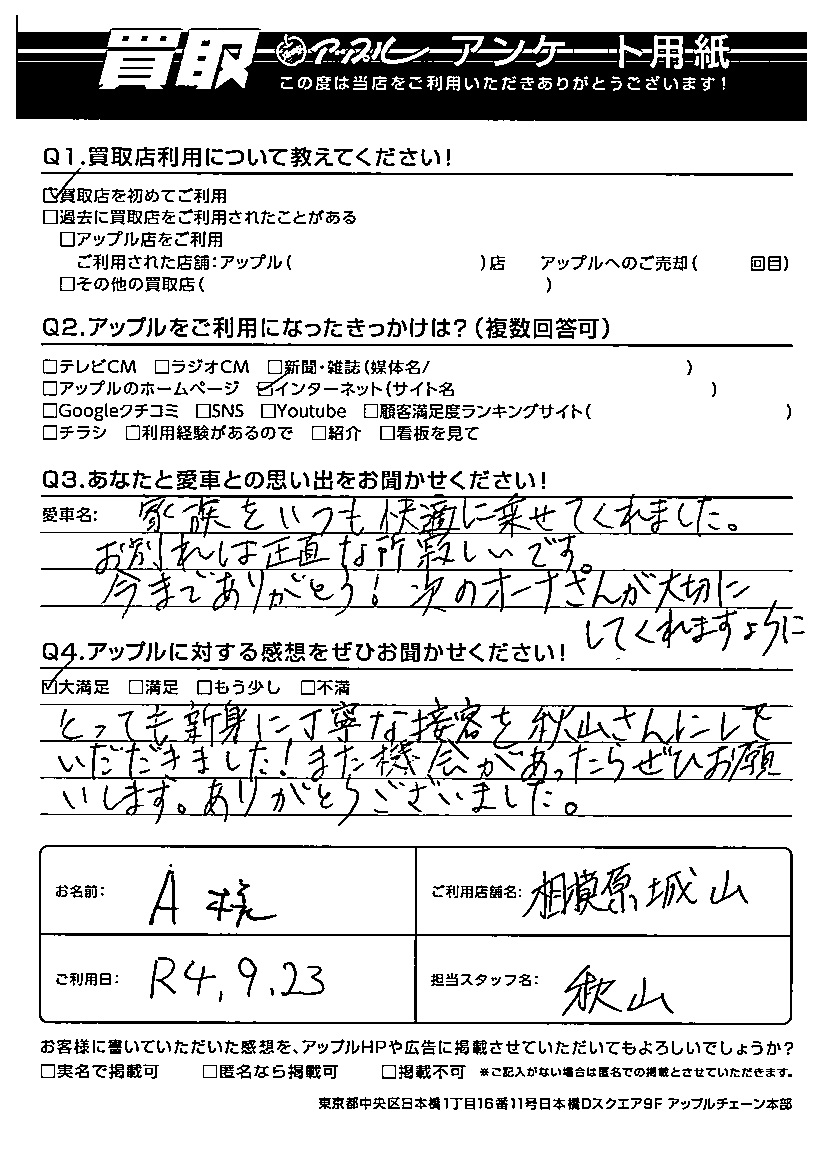 買取 アップル アンケート用紙
この度は当店をご利用いただきありがとうございます！
Q1.買取店利用について教えてください！
☑買取店を初めてご利用
□過去に買取店をご利用されたことがある
□アップル店をご利用
ご利用された店舗：アップル（ ）店 アップルへのご売却（ 回目）
□その他の買取店（ ）
Q2.アップルをご利用になったきっかけは？（複数回答可）
□テレビCM □ラジオCM □新聞・雑誌（媒体名/ ）
□アップルのホームページ ☑インターネット（サイト名 ）
□Googleクチコミ □SNS □Youtube □顧客満足度ランキングサイト（ ）
□チラシ □利用経験があるので □紹介 □看板を見て
Q3.あなたと愛車との思い出をお聞かせください！
愛車名： 家族をいつも快適に乗せてくれました。
お別れしは正直な所寂しいです。
今までありがとう！次のオーナさんが大切に
してくれますように
Q4.アップルに対する感想をぜひお聞かせください！
☑大満足 □満足 □もう少し □不満
とっても新身に丁寧な接客を秋山さんにして
いだだきました！また機会があったらぜひお願
いします。ありがとうございました。
お名前： A様 ご利用店舗名： 相模原城山
ご利用日： R4.9.23 担当スタッフ名： 秋山
お客様に書いていただいた感想を、アップルHPや広告に掲載させていただいてもよろしいでしょうか？
□実名で掲載可 □匿名なら掲載可 □掲載不可 ※ご記入がない場合は匿名での掲載とさせていただきます。
東京都中央区日本橋1丁目16番11号日本橋Dスクエア9F アップルチェーン本部